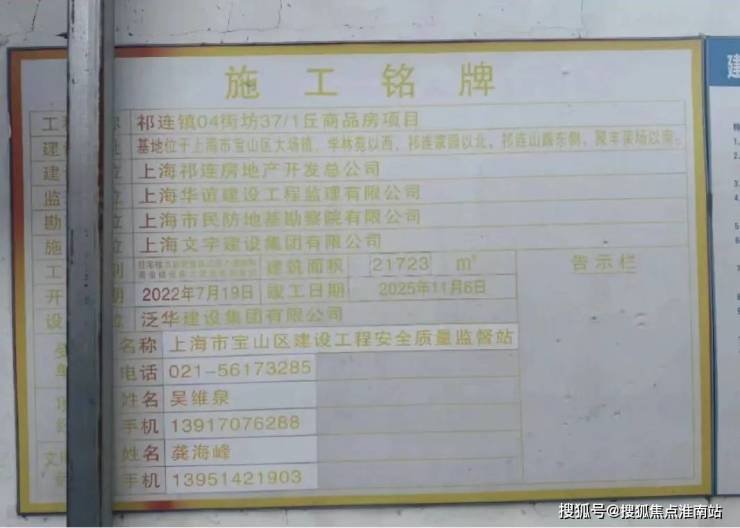 施工铭牌
工 称 祁连镇04街坊37/1丘商品房项目
建 址 基地位于上海市宝山区大场镇、学林苑以西、祁连家园以北、祁连山路东侧、聚丰菜场以南。
建 位 上海祁连房地产开发总公司
监 位 上海华谊建设工程监理有限公司
勘 位 上海市民防地基勘察院有限公司
施 位 上海文宇建设集团有限公司
工 别 建筑面积 21723 m² 告示栏
开 期 2022年7月19日 竣工日期 2025年11月6日
设 位 泛华建设集团有限公司
受 名称 上海市宝山区建设工程安全质量监督站
单 电话 021-56173285
项 姓名 吴维泉
经 手机 13917076288
文 姓名 龚海峰
手机 13951421903
建
搜狐号@搜狐焦点淮南站